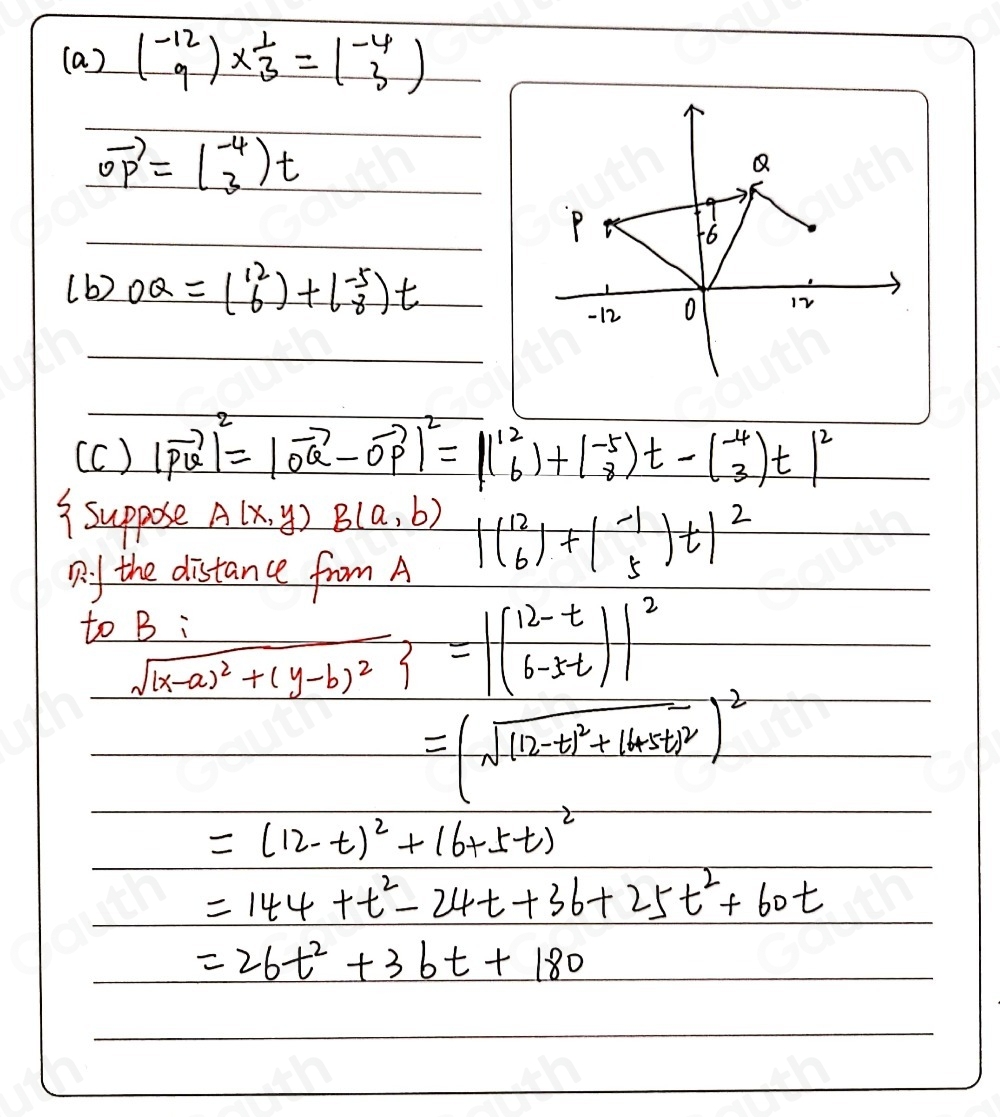 (a) (-12 9) × 1/3 = (-4 3)
OP = (-4 3)t
(b) OQ = (12 6) + (-5 8)t
P
Q
9
6
-12
0
12
(C) |PQ|² = |OQ - OP|² = |(12 6) + (-5 8)t - (-4 3)t|²
{ Suppose A(x, y) B(a, b)
则 the distance from A
to B :
√(x-a)² + (y-b)² }
|(12 6) + (-1 5)t|²
= |(12-t 6-5t)|²
= (√(12-t)² + (6+5t)²)²
= (12-t)² + (6+5t)²
= 144 + t² - 24t + 36 + 25t² + 60t
= 26t² + 36t + 180
Gauth